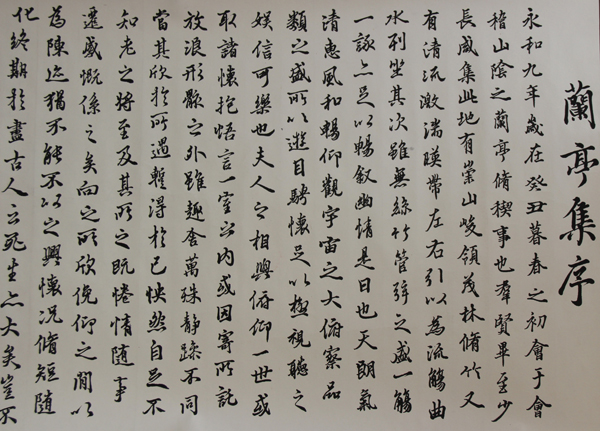 蘭亭集序
永和九年歲在癸丑暮春之初會于會
稽山陰之蘭亭脩稧事也羣賢畢至少
長咸集此地有崇山峻領茂林脩竹又
有清流激湍暎帶左右引以為流觴曲
水列坐其次雖無絲竹管弦之盛一觴
一詠亦足以暢敘幽情是日也天朗氣
清惠風和暢仰觀宇宙之大俯察品
類之盛所以遊目騁懷足以極視聽之
娛信可樂也夫人之相與俯仰一世或
取諸懷抱悟言一室之內或因寄所託
放浪形骸之外雖趣舍萬殊靜躁不同
當其欣於所遇暫得於己怏然自足不
知老之將至及其所之既惓情隨事
遷感慨係之矣向之所欣俛仰之間以
為陳迹猶不能不以之興懷況脩短隨
化終期於盡古人云死生亦大矣豈不